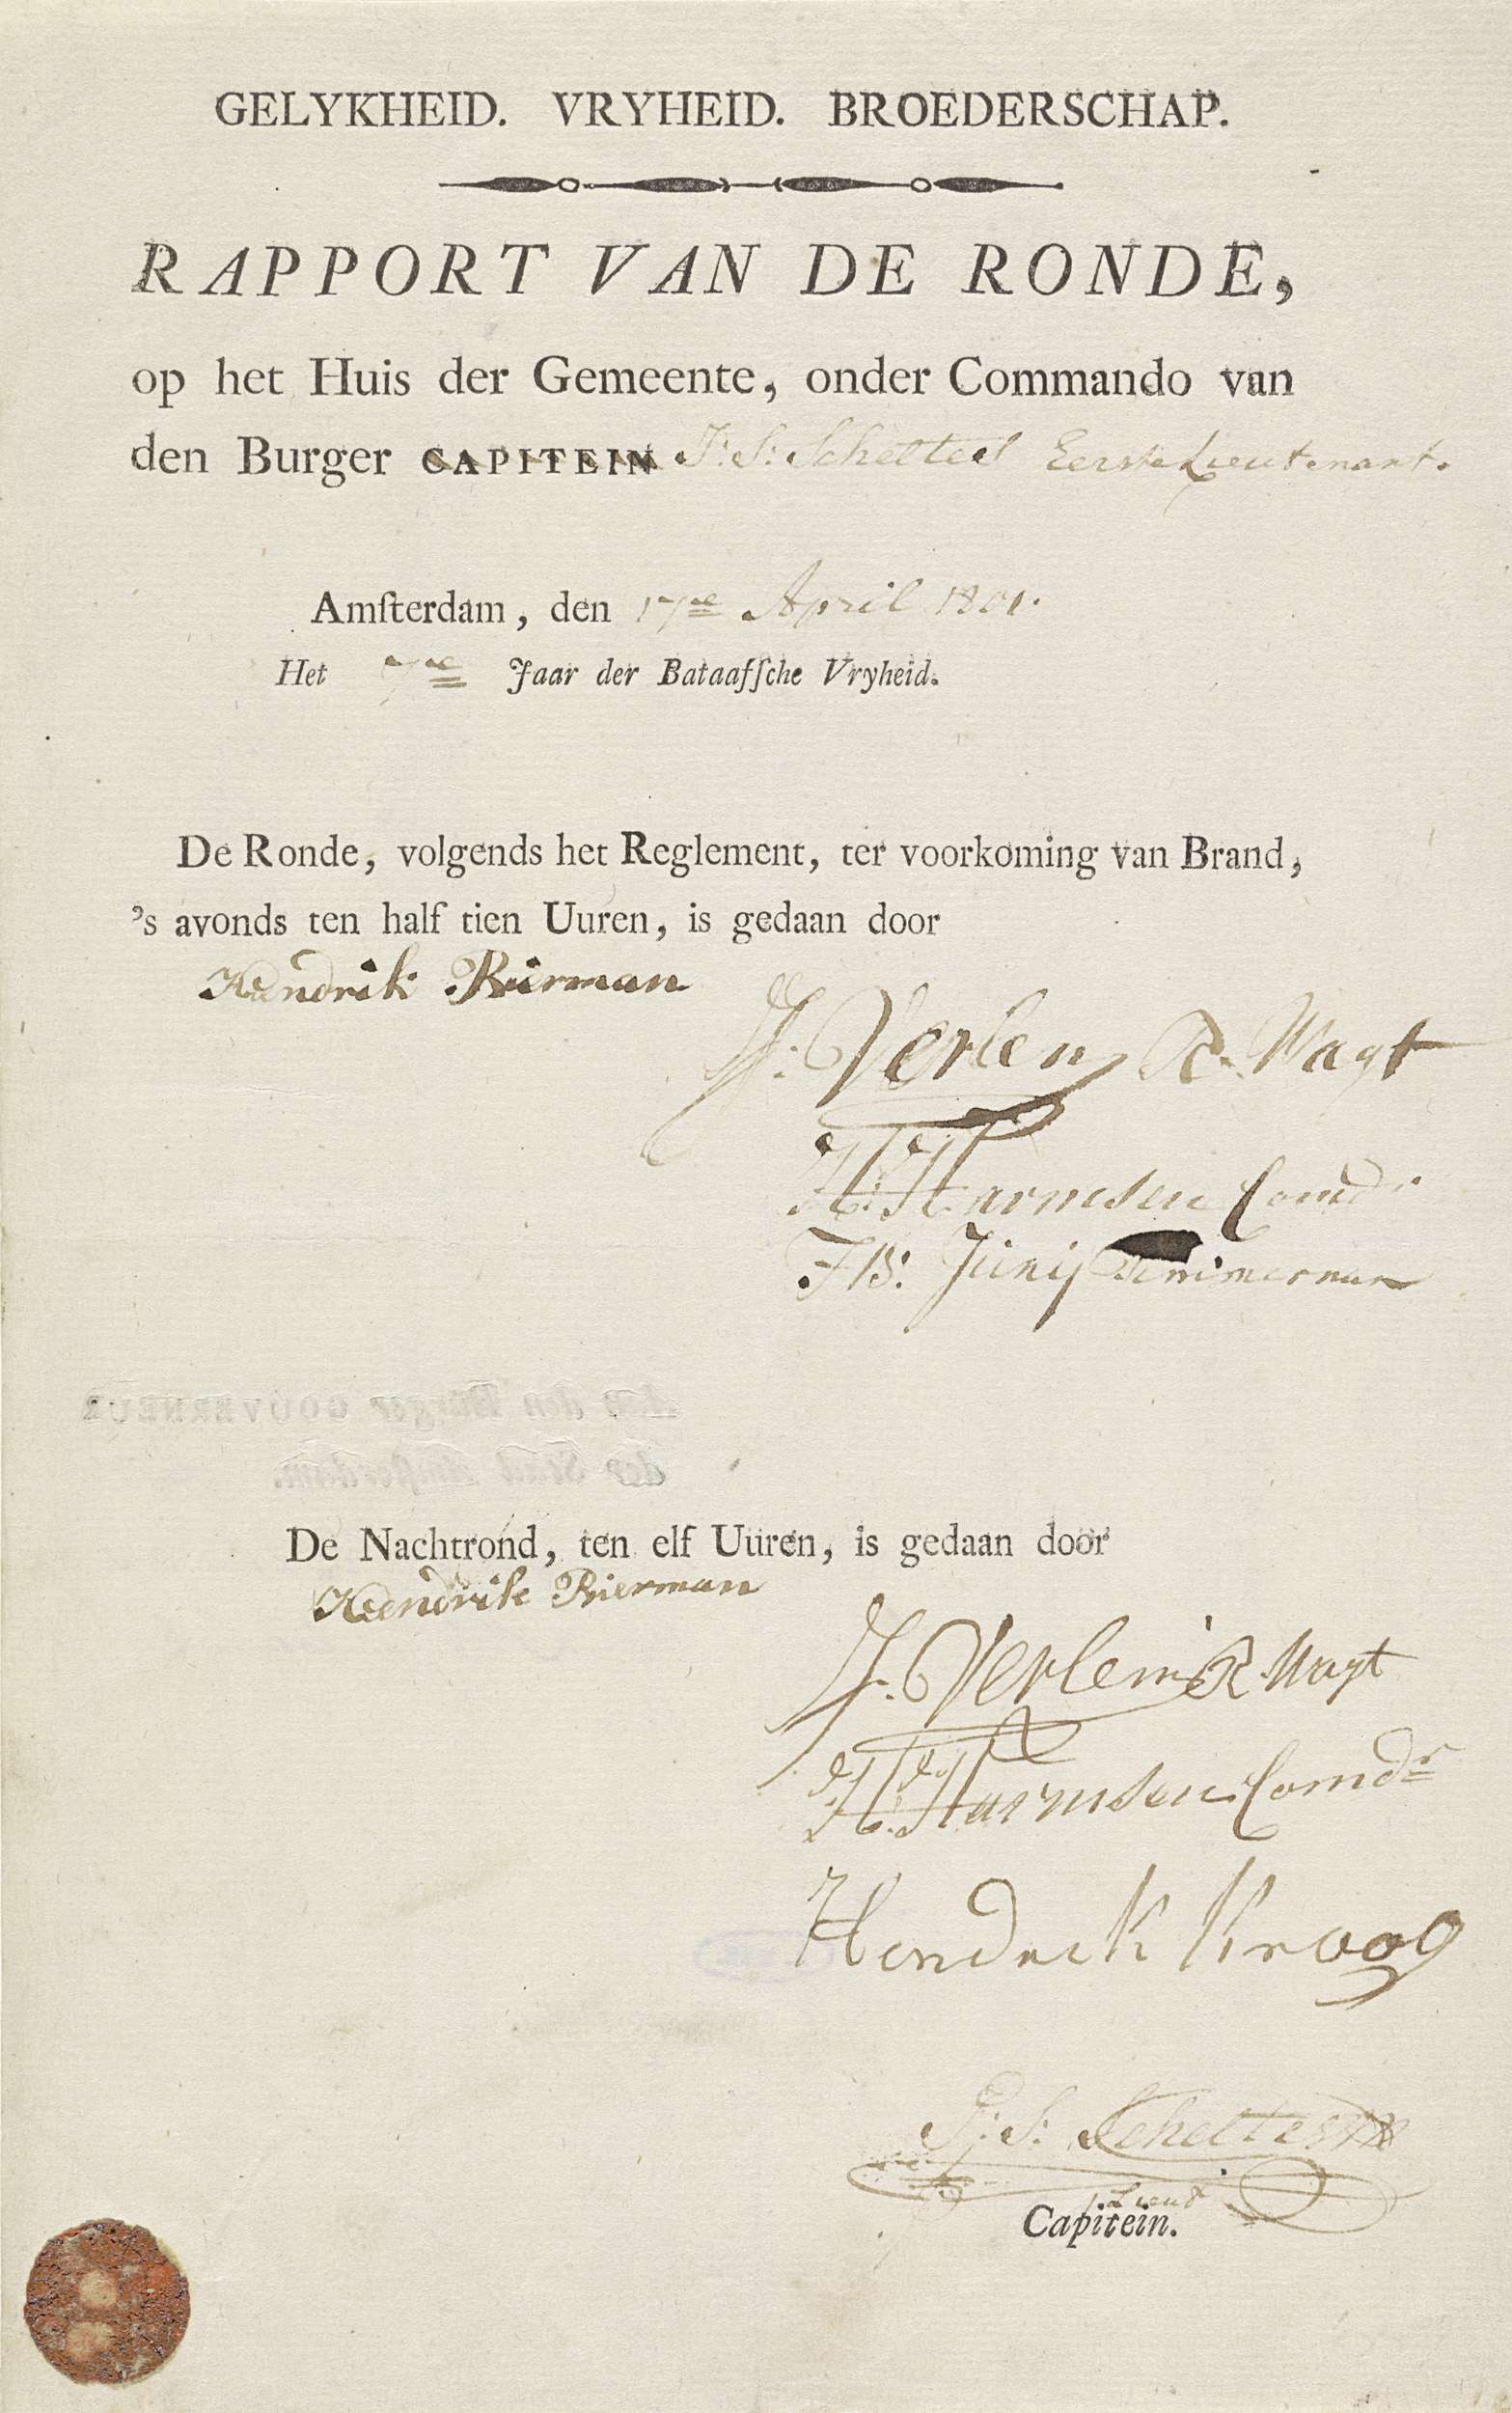 GELYKHEID. VRYHEID. BROEDERSCHAP.
RAPPORT VAN DE RONDE,
op het Huis der Gemeente, onder Commando van
den Burger CAPITEIN J: S: Scheltes Eerste Lieutenant.
Amſterdam, den 17de April 1801.
Het 7de Jaar der Bataafſche Vryheid.
De Ronde, volgends het Reglement, ter voorkoming van Brand,
's avonds ten half tien Uuren, is gedaan door
Hendrik Bierman
J: Verlem R. Wagt
H: Harmsen Comdr
J B: Junij Timmerman
Aan den Burger GOUVERNEUR
der Stad Amſterdam.
De Nachtrond, ten elf Uuren, is gedaan door
Hendrik Bierman
J. Verlem R Wagt
H. Harmsen Comdr
Hendrik Kroog
J: S: Scheltes
Lieut
Capitein.